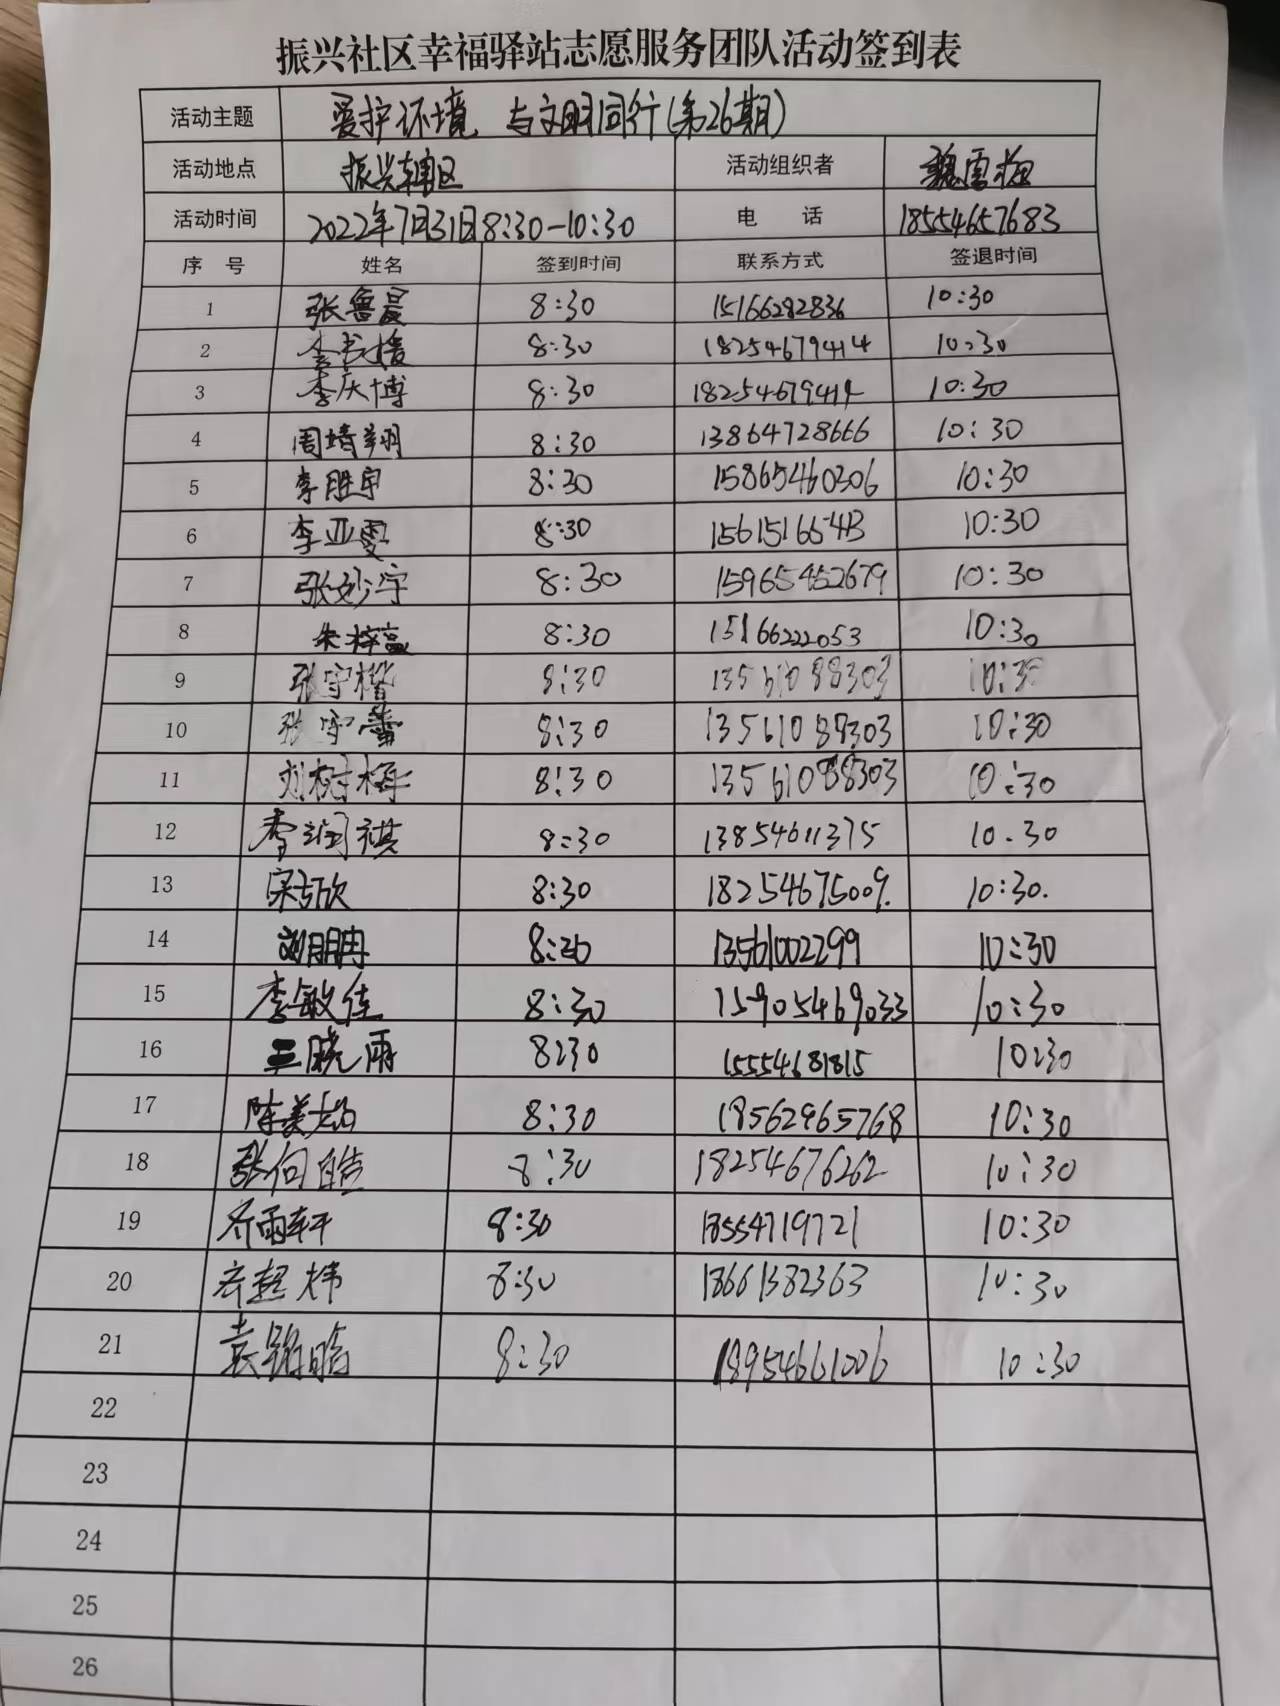 振兴社区幸福驿站志愿服务团队活动签到表
活动主题 爱护环境 与文明同行(第26期)
活动地点 振兴辖区 活动组织者 魏雪梅
活动时间 2022年7月31日8:30-10:30 电 话 18554657683
序 号 姓名 签到时间 联系方式 签退时间
1 张鲁晏 8:30 15166282836 10:30
2 8:30 18254679414 10:30
3 李庆博 8:30 18254679414 10:30
4 周靖翔 8:30 13864728666 10:30
5 李胜宇 8:30 15865460306 10:30
6 李亚雯 8:30 10:30
7 张妙宇 8:30 15965452679 10:30
8 朱梓赢 8:30 15166222053 10:30
9 张宇楷 8:30 13561088303 10:30
10 张宇蕾 8:30 13561088303 10:30
11 刘树梅 8:30 13561088303 10:30
12 李润祺 8:30 13854611375 10.30
13 宋欣 8:30 18254675009. 10:30.
14 刘朋冉 8:30 13561002299 10:30
15 李敏佳 8:30 15905469033 10:30
16 王晓雨 8:30 15554681815 10:30
17 陈美如 8:30 18562965768 10:30
18 张向皓 8:30 18254676262 10:30
19 齐雨轩 8:30 18554719721 10:30
20 齐超炜 8:30 18661382363 10:30
21 袁铭晗 8:30 18954661006 10:30
22
23
24
25
26